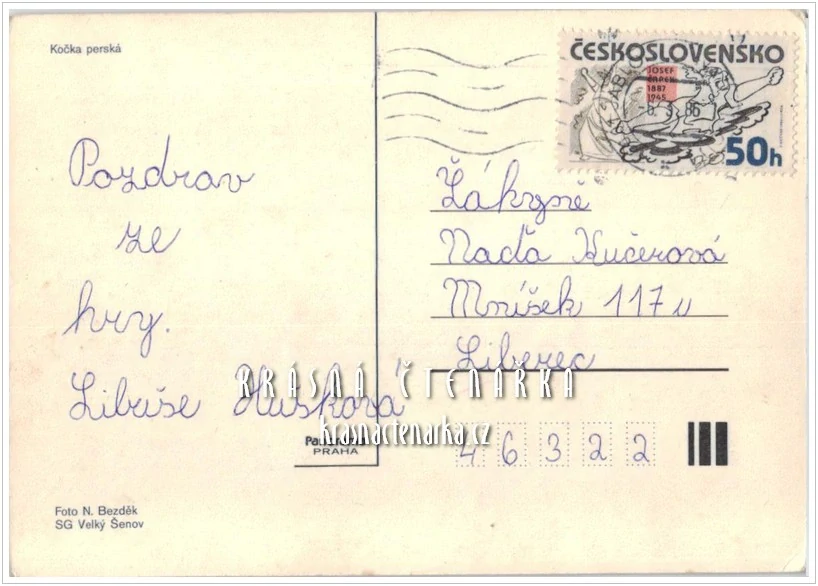 Kočka perská
ČESKOSLOVENSKO
JOSEF
ČAPEK
1887
1945
50h
Pozdrav
ze
hry.
Libuše Hušková
Žákyně
Naďa Kučerová
Mníšek 117 u
Liberec
KRÁSNÁ ČTENÁŘKA
krasnactenarka.cz
PRAHA
46322
Foto N. Bezděk
SG Velký Šenov